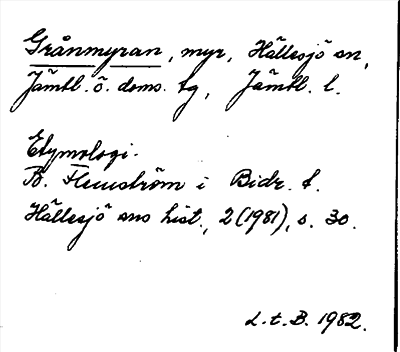 Grånmyran, myr, Hällesjö sn,
Jämtl. ö. doms. tg, Jämtl. l.
Etymologi.
B. Flemström i Bidr. t.
Hällesjö sns hist., 2 (1981), s. 30.
L.t.B. 1982.